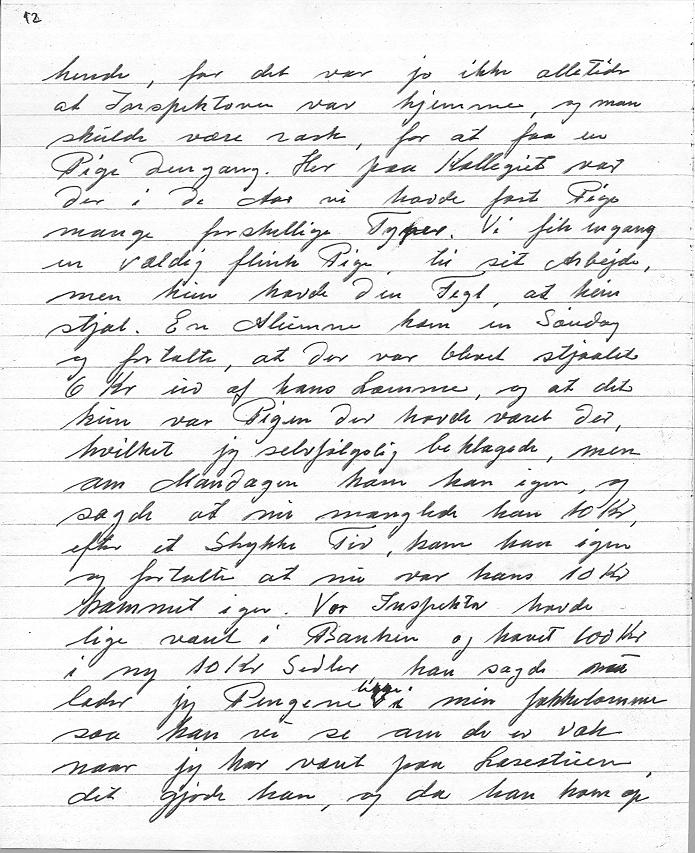 12
hende, for det var jo ikke alletider
at Inspektoren var hjemme, og man
skulde være rask, for at faa en
Pige dengang. Her paa Kollegiet var
der i de Aar vi havde fast Pige
mange forskellige Typer. Vi fik engang
en vældig flink Pige, til sit Arbejde,
men hun havde den Fejl, at hun
stjal. En Alumne kom en Søndag
og fortalte, at der var blevet stjaalet
6 Kr ud af hans Lomme, og at det
kun var Pigen der havde været der,
hvilket jeg selvfølgelig beklagede, men
om Mandagen kom han igen, og
sagde at nu manglede han 10 Kr,
efter et Stykke Tid, kom han igen
og fortalte at nu var hans 10 Kr
kommet igen. Vor Inspektør havde
lige været i Banken og hævet 100 Kr
i ny 10 Kr Sedler, han sagde nu
lader jeg Pengene ligge i min Jakkelomme
saa kan vi se om de er væk
naar jeg har været paa Læsestuen,
det gjorde han, og da han kom op